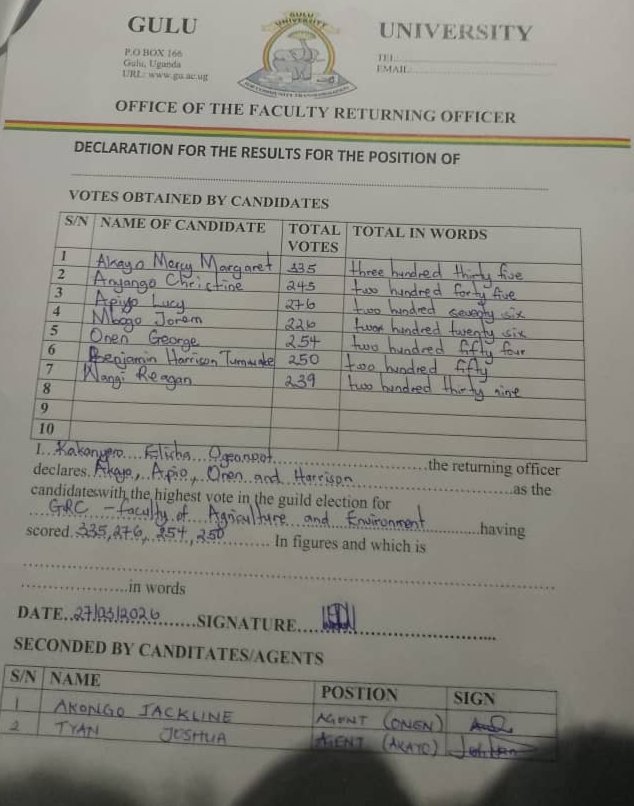 GULU UNIVERSITY
P.O BOX 166
Gulu, Uganda
URL: www.gu.ac.ug
TEL
EMAIL
GULU UNIVERSITY
FOR COMMUNITY TRANSFORMATION
OFFICE OF THE FACULTY RETURNING OFFICER
DECLARATION FOR THE RESULTS FOR THE POSITION OF
VOTES OBTAINED BY CANDIDATES
S/N NAME OF CANDIDATE TOTAL VOTES TOTAL IN WORDS
1 Akayo Mercy Margaret 335 three hundred thirty five
2 Anyango Christine 245 two hundred forty five
3 Apiyo Lucy 276 two hundred seventy six
4 Mbogo Joram 226 two hundred twenty six
5 Onen George 254 two hundred fifty four
6 Benjamin Harrison 250 two hundred fifty
7 Wangi Reagan 239 two hundred thirty nine
8
9
10
I Kakanyero Elisha the returning officer
declares Akayo, Apio, Onen and Harrison as the
candidateswith the highest vote in the guild election for
GRC - Faculty of Agriculture and Environment having
scored 335, 276, 254, 250 In figures and which is
in words
DATE 27/03/2026 SIGNATURE
SECONDED BY CANDITATES/AGENTS
S/N NAME POSTION SIGN
1 AKONGO JACKLINE AGENT (ONEN)
2 TYAN JOSHUA AGENT (AKAYO)